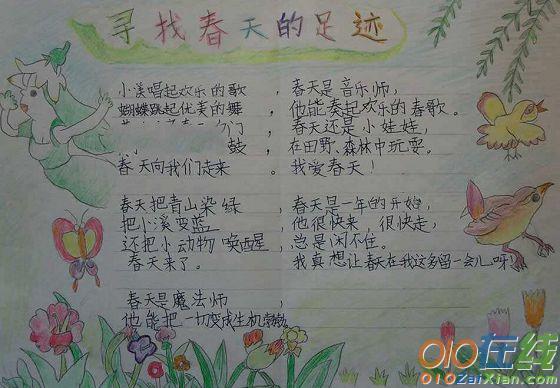 寻找春天的足迹
小溪唱起欢乐的歌，
蝴蝶跳起优美的舞
们
鼓，
春天向我们走来。
春天把青山染绿，
把小溪变蓝，
还把小动物唤西星，
春天来了。
春天是魔法师，
他能把一切变成生机勃勃。
春天是音乐师，
他能奏起欢乐的春歌。
春天还是小娃娃，
在田野、森林中玩耍。
我爱春天！
春天是一年的开始，
他很快来 很快走，
总是闲不住。
我真想让春在我这多留一会儿呀！
010在线
010ZaiXian.com